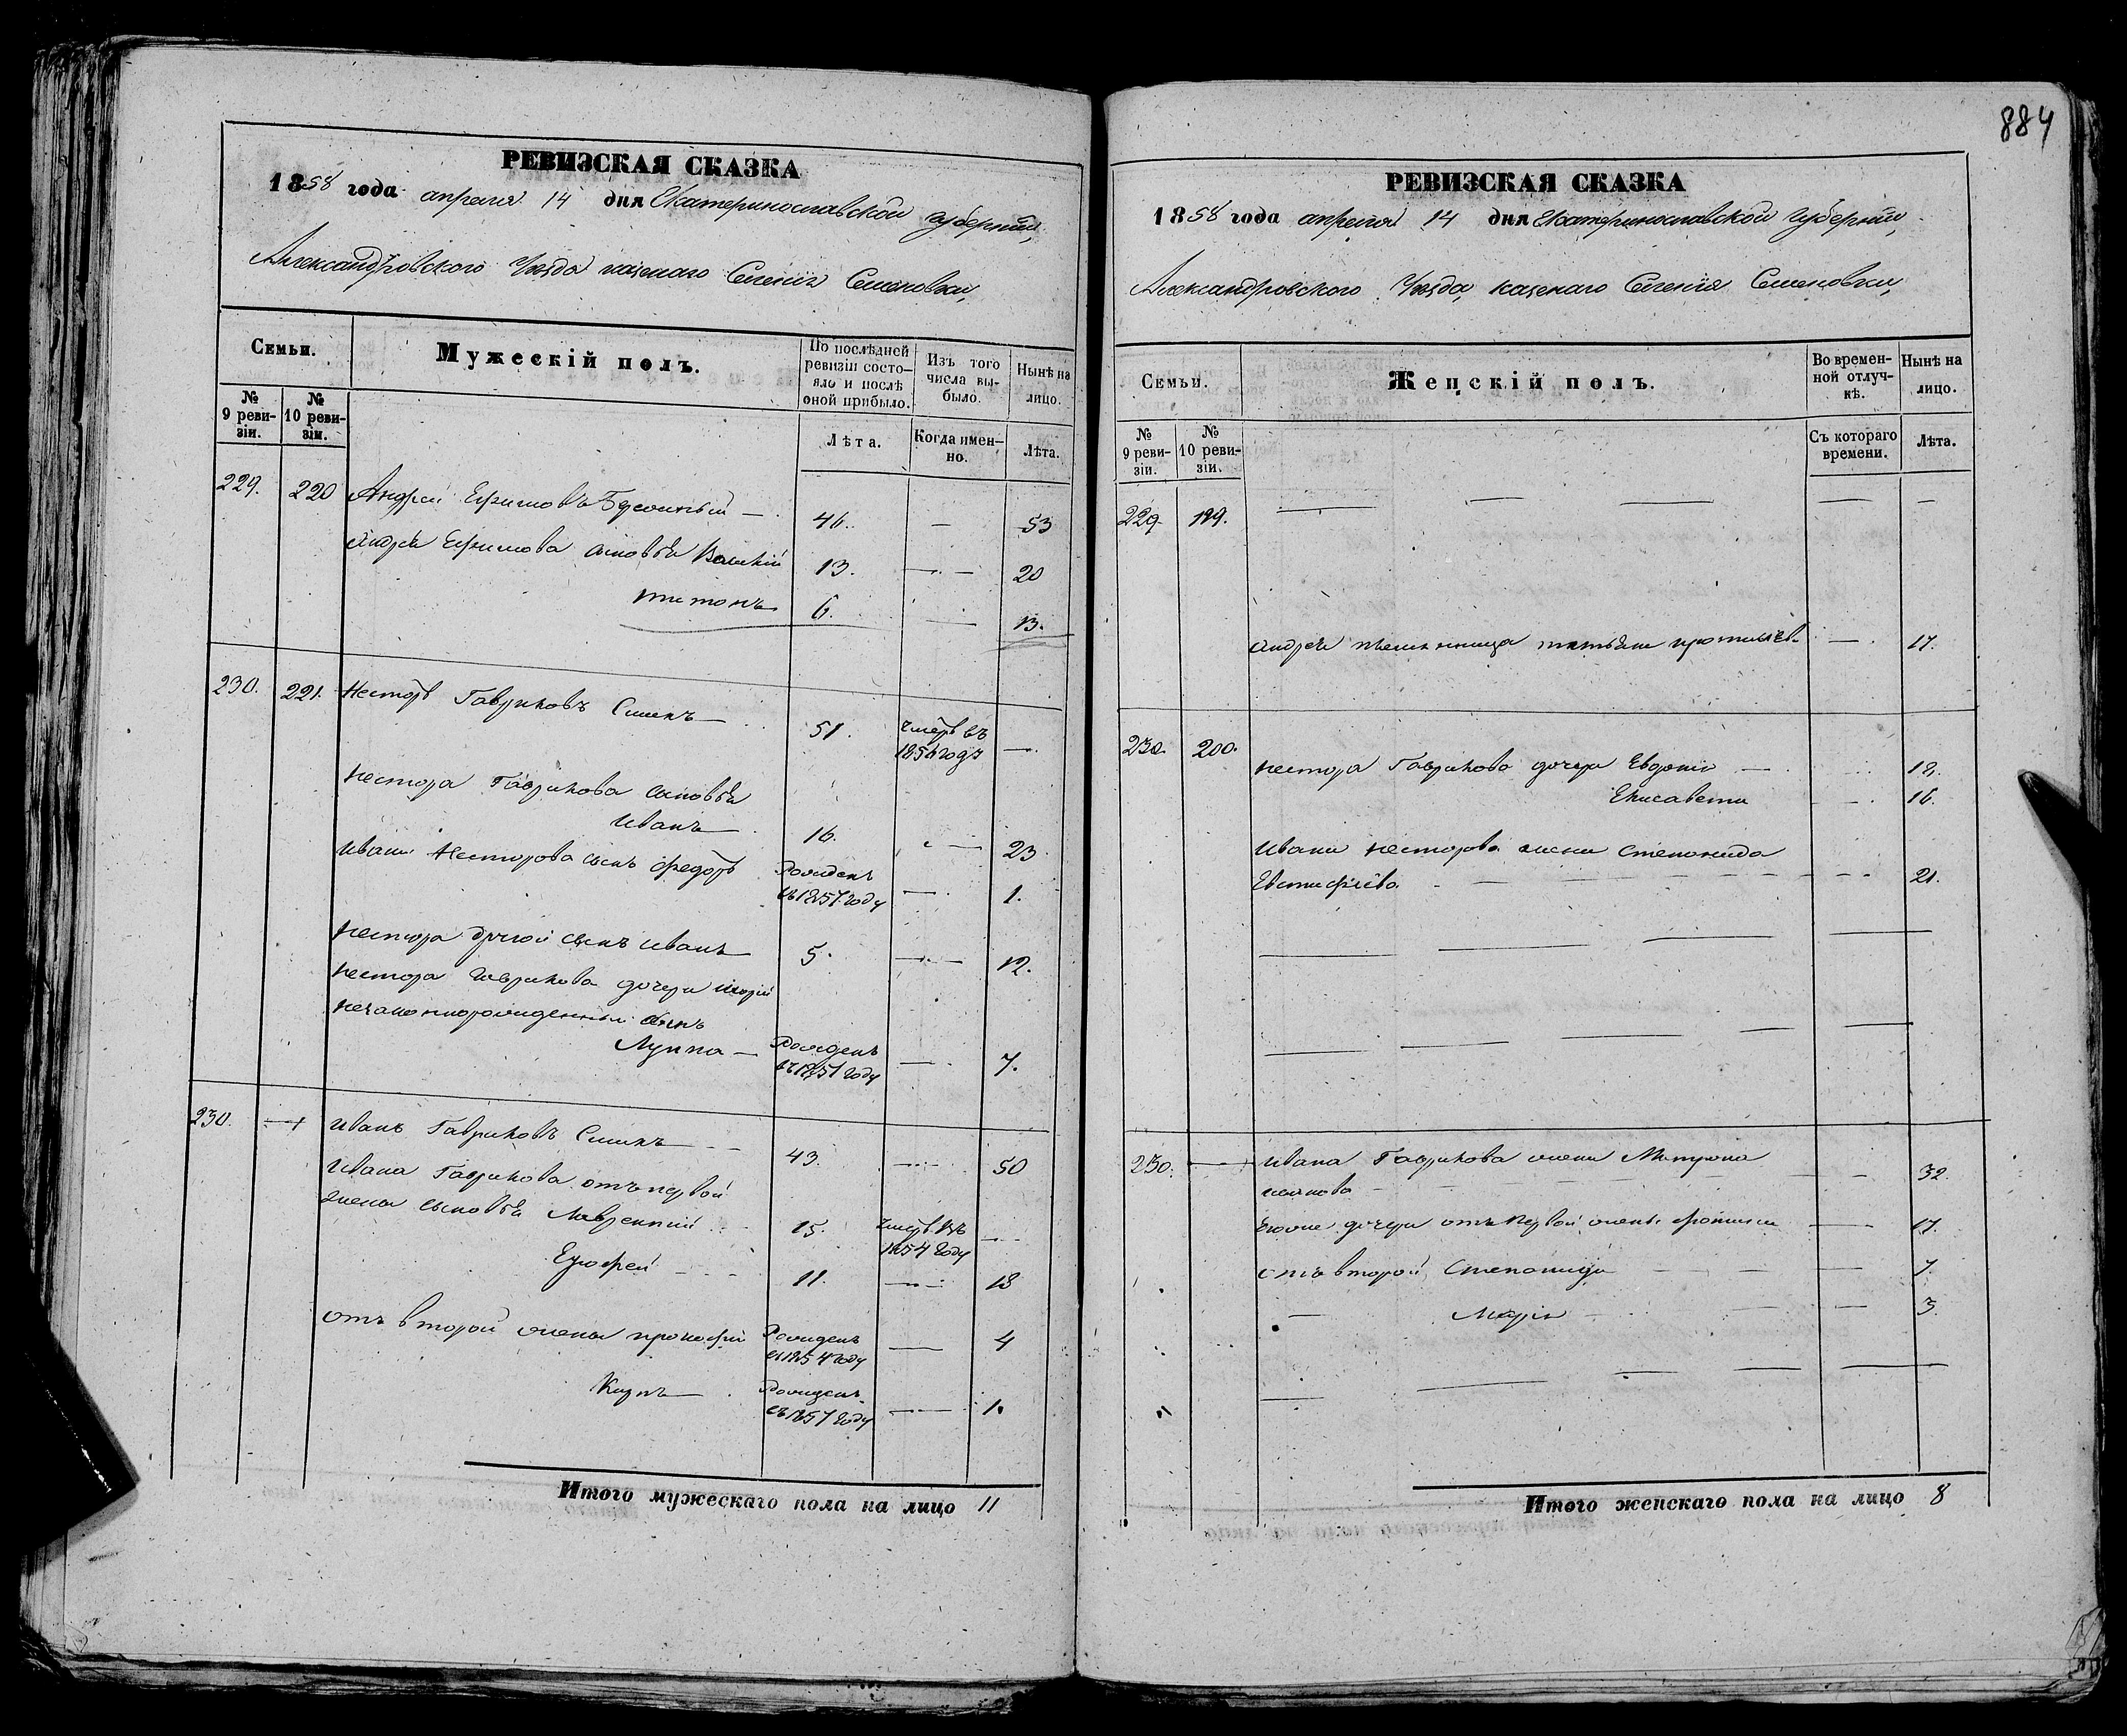 884
РЕВИЗСКАЯ СКАЗКА
1858 года апреля 14 дня Екатеринославской губернiи,
Александровского Уѣзда казенаго Селенiя Семеновки,
Семьи.
Мужескiй полъ.
По послѣдней ревизiи состо-
яло и послѣ
оной прибыло.
Изъ того
числа вы-
было.
Нынѣ на
лицо.
№
9 реви-
зiи.
№
10 реви-
зiи.
Лѣта.
Когда имен-
но.
Лѣта.
229. 220 Андрей Ефимовъ — 46. — 53
Андрея Ефимова сыновья 13. — 20
титонъ 6. — 13.
230. 221. Несторъ Гавриловъ — 51. Умеръ въ
185 годѣ —
Нестора Гаврилова сыновья
Иванъ 16. — 23
Ивана Несторова сынъ Федоръ Рожденъ
въ 1857 году — 1.
Нестора другой сынъ Иванъ 5. — 12.
Нестора Гаврилова дочери Марiи
незаконнорожденный сынъ
Луппа — Рожденъ
въ 1851 году — 7.
230. — Иванъ Гавриловъ — 43. — 50
Ивана Гаврилова отъ первой
жены сыновья Лаврентий 15. Умеръ въ
1854 году —
Ерофей 11. — 18
отъ второй жены прокофiй Рожденъ
въ 1854 году — 4
Карпъ — Рожденъ
въ 1857 году — 1.
Итого мужескаго пола на лицо 11
РЕВИЗСКАЯ СКАЗКА
1858 года апреля 14 дня Екатеринославской Губернiи,
Александровского Уѣзда, казенаго Селенiя Семеновки,
Семьи.
Женскiй полъ.
Во времен-
ной отлуч-
кѣ.
Нынѣ на
лицо.
№
9 реви-
зiи.
№
10 реви-
зiи.
Съ котораго
времени.
Лѣта.
229. 199. — — — — —
Андрея племянница татьяна — 17.
230. 200. Нестора Гаврилова дочери — 18.
Елисавета — 16.
Ивана Несторова жена Степанида
Евстафiева — 21.
230. — Ивана Гаврилова жена
— 32.
дочери отъ первой жены — 17.
отъ второй, Степанида — 7.
— Марiя — 3.
Итого женскаго пола на лицо 8